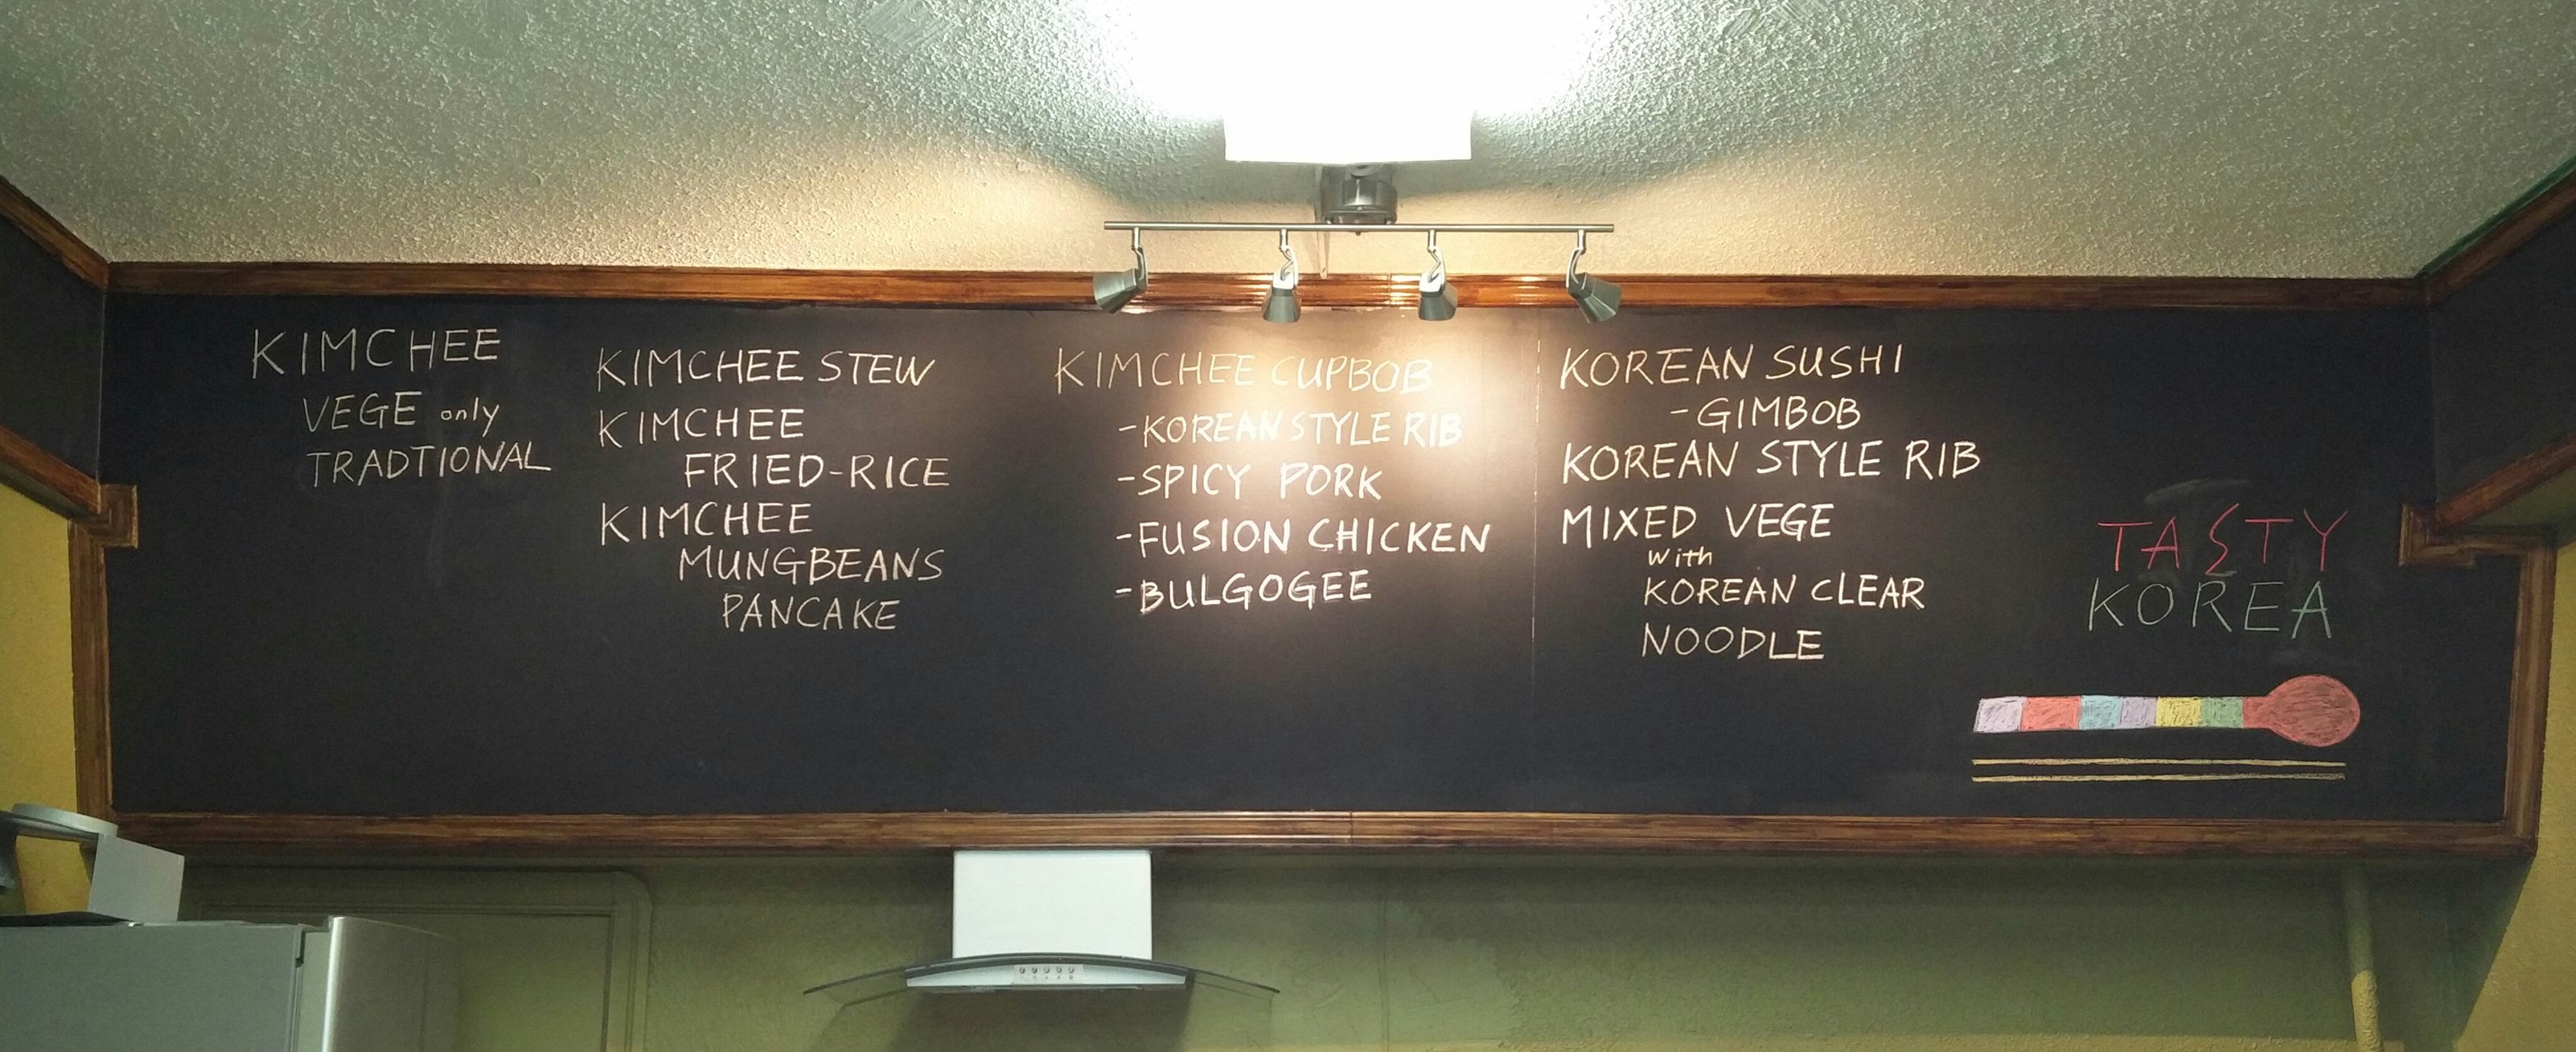 KIMCHEE
VEGE only
TRADTIONAL
KIMCHEE STEW
KIMCHEE
FRIED-RICE
KIMCHEE
MUNGBEANS
PANCAKE
KIMCHEE CUPBOB
-KOREAN STYLE RIB
-SPICY PORK
-FUSION CHICKEN
-BULGOGEE
KOREAN SUSHI
-GIMBOB
KOREAN STYLE RIB
MIXED VEGE
with
KOREAN CLEAR
NOODLE
TASTY
KOREA